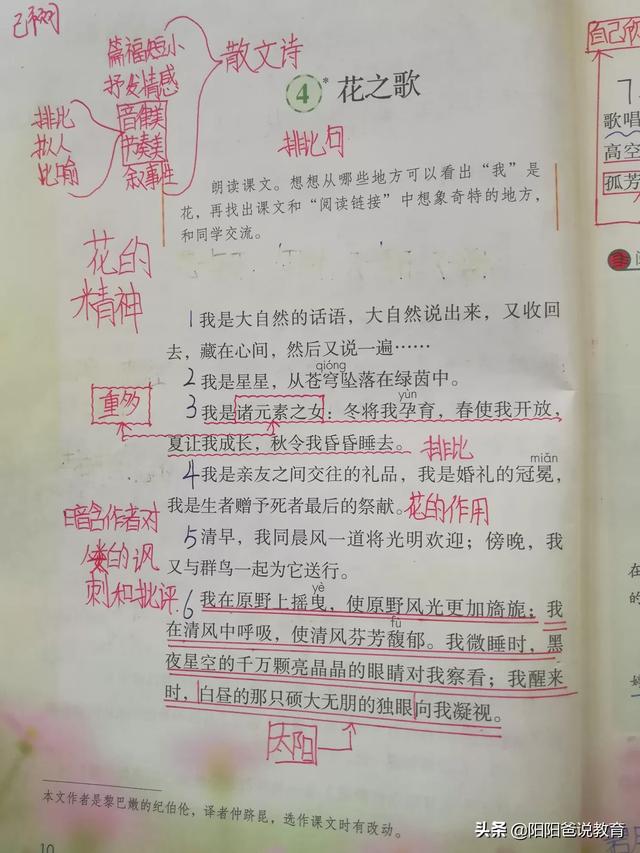 篇福短小
抒发情感
音律美
节奏美
叙事性
散文诗
排比
拟人
比喻
4* 花之歌
排比句
朗读课文。想想从哪些地方可以看出“我”是
花，再找出课文和“阅读链接”中想象奇特的地方，
和同学交流。
花的
精神
1 我是大自然的话语，大自然说出来，又收回
去，藏在心间，然后又说一遍……
qióng
2 我是星星，从苍穹坠落在绿茵中。
yùn
重多
3 我是诸元素之女：冬将我孕育，春使我开放，
夏让我成长，秋令我昏昏睡去。
排比
miǎn
4 我是亲友之间交往的礼品，我是婚礼的冠冕，
我是生者赠予死者最后的祭献。
花的作用
5 清早，我同晨风一道将光明欢迎；傍晚，我
又与群鸟一起为它送行。
暗含作者对
的讽
刺和批评
yè
6 我在原野上摇曳，使原野风光更加旖旎；我
fù
在清风中呼吸，使清风芬芳馥郁。我微睡时，黑
夜星空的千万颗亮晶晶的眼睛对我察看；我醒来
时，白昼的那只硕大无朋的独眼向我凝视。
太阳
本文作者是黎巴嫩的纪伯伦，译者仲跻昆，选作课文时有改动。
10
自己
歌唱
高空
孤芳
在
的
头条 @阳阳爸说教育